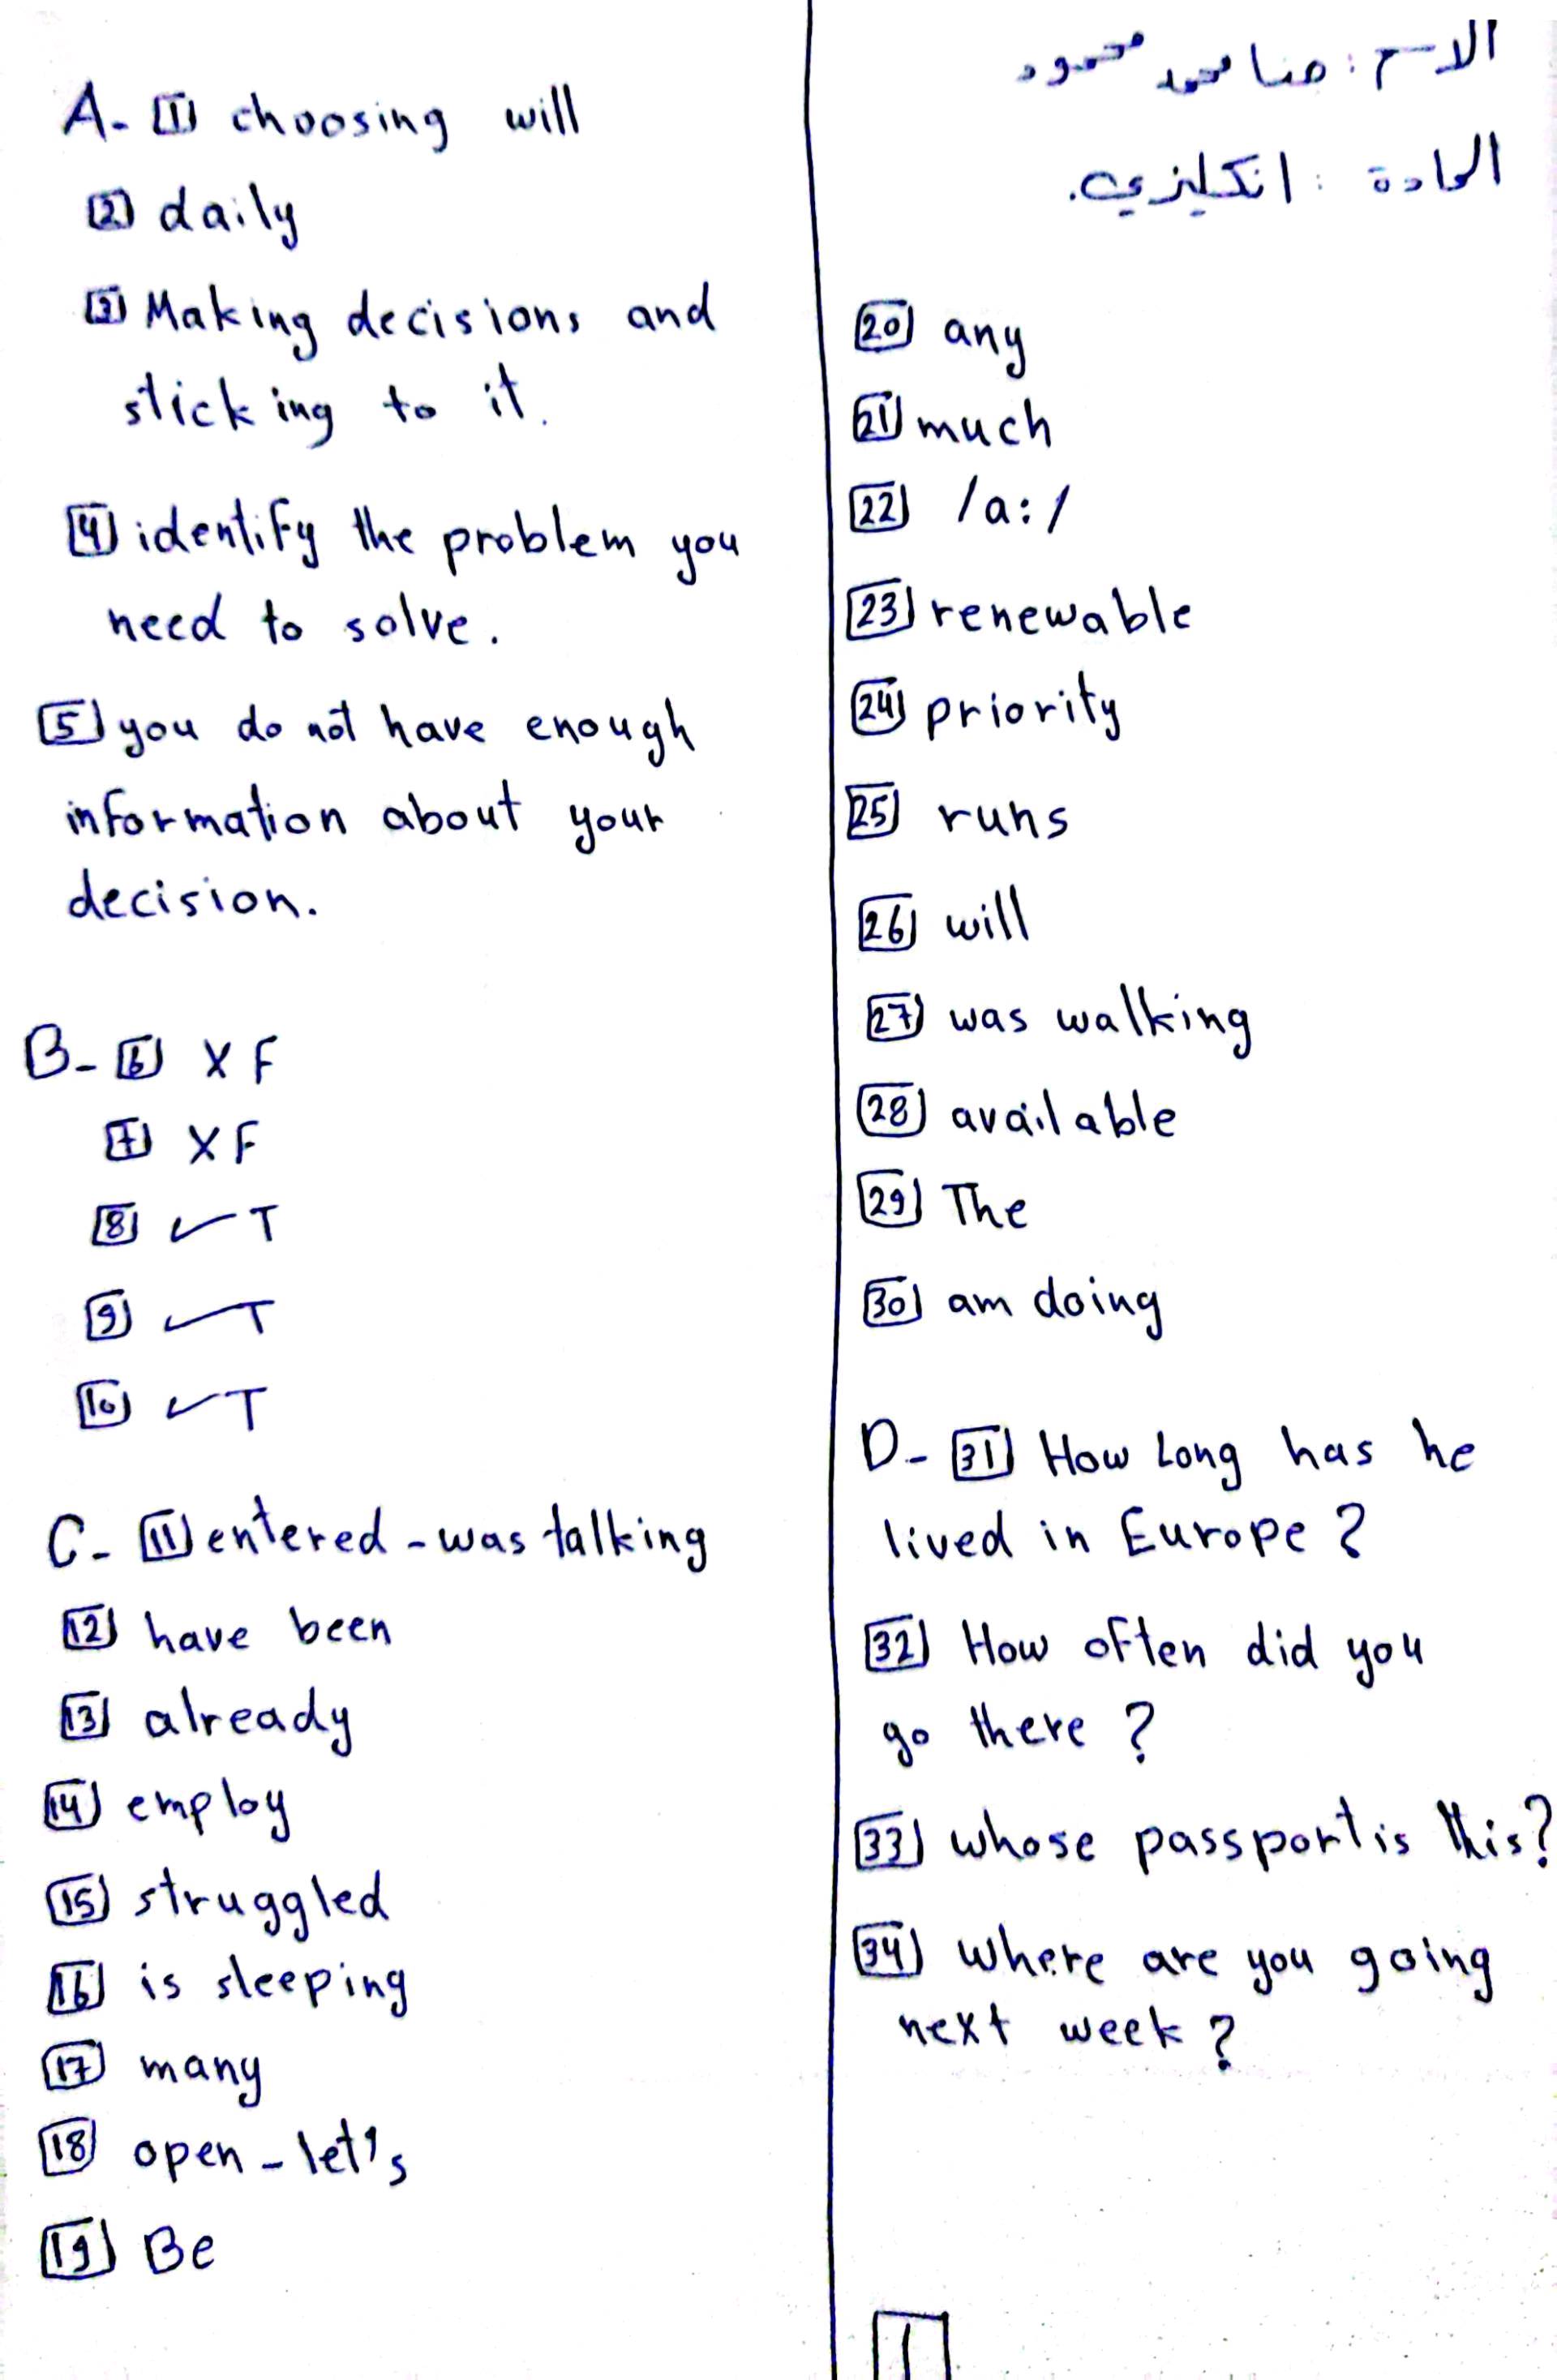 الاسم : صبا محمد محمود
المادة : انكليزي.
A- 1 choosing will
2 daily
3 Making decisions and
sticking to it.
4 identify the problem you
need to solve.
5 you do not have enough
information about your
decision.
B- 6 X F
7 X F
8 ✓ T
9 ✓ T
10 ✓ T
C- 11 entered - was talking
12 have been
13 already
14 employ
15 struggled
16 is sleeping
17 many
18 open - let's
19 Be
20 any
21 much
22 /a:/
23 renewable
24 priority
25 runs
26 will
27 was walking
28 available
29 The
30 am doing
D- 31 How Long has he
lived in Europe ?
32 How often did you
go there ?
33 whose passport is this?
34 where are you going
next week ?
1